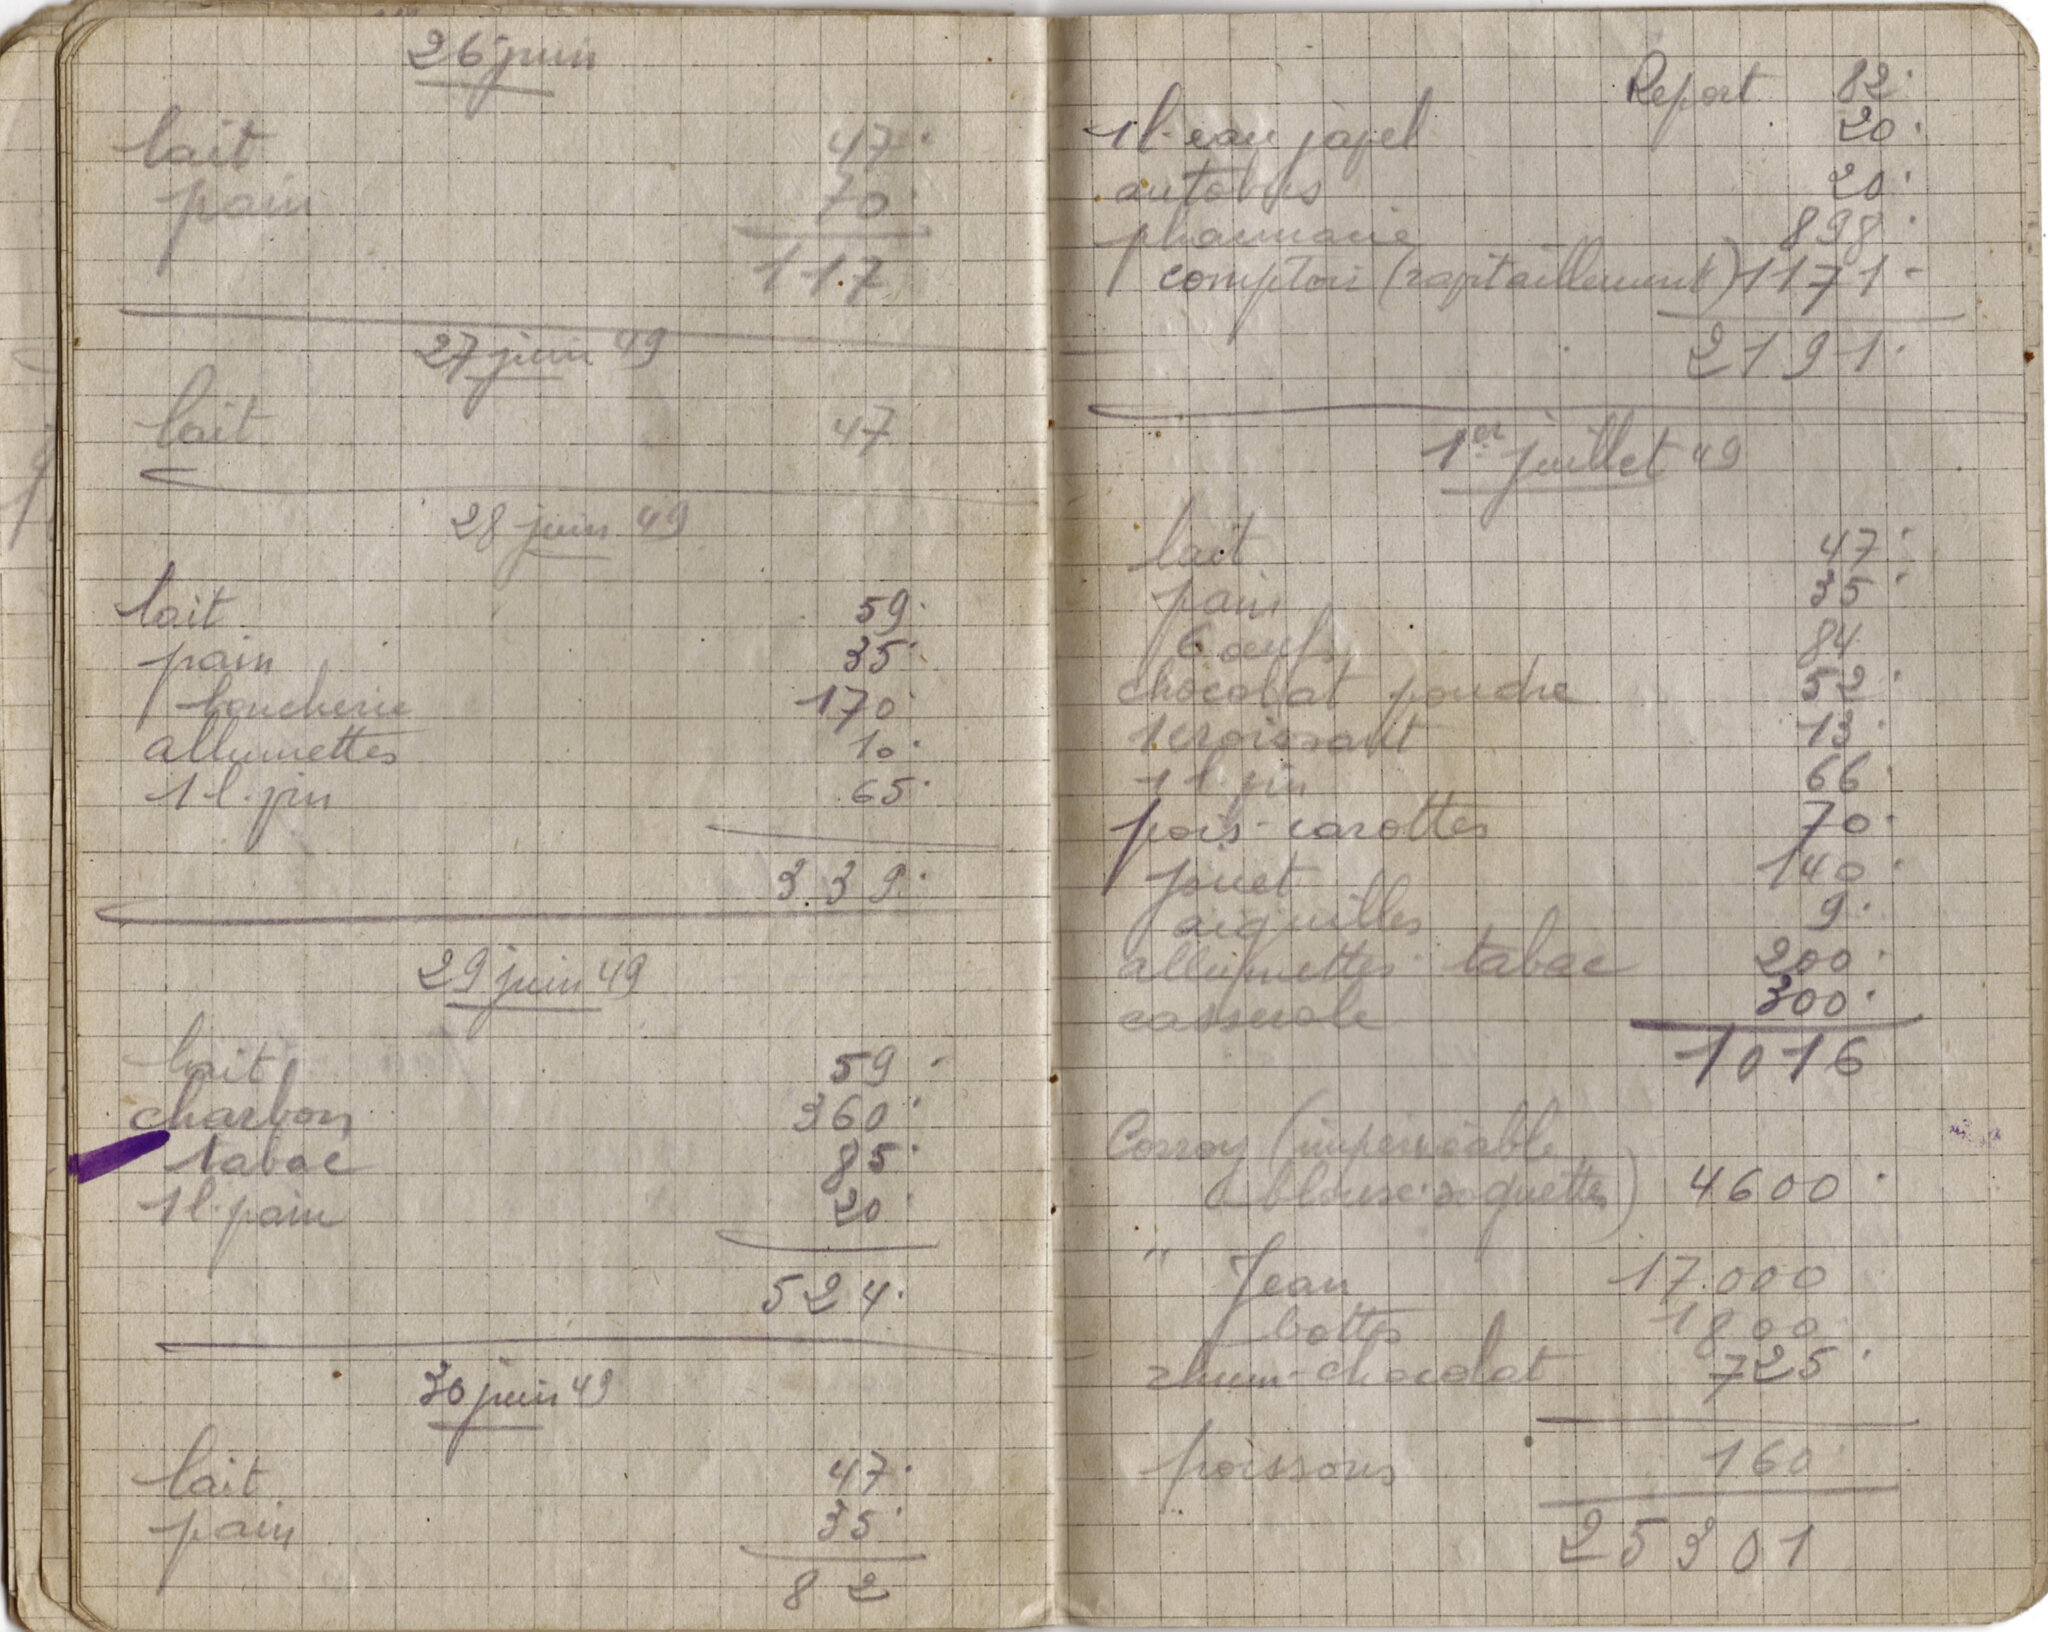 26 juin
lait 47.
pain 70.
117
27 juin 49
lait 47
28 juin 49
lait 59.
pain 35.
boucherie 170.
allumettes 10.
1 l. vin 65.
339.
29 juin 49
lait 59.
charbon 360.
tabac 85.
1 l. pain 20.
524.
30 juin 49
lait 47.
pain 35.
82
Report 82.
1 l. eau javel 20.
autobus 20.
pharmacie 898.
comptoir (ravitaillement) 1171.
2191.
1er juillet 49
lait 47.
pain 35.
6 œufs 84
chocolat poudre 52.
1 croissant 13.
1 l. vin 66.
pois-carottes 70.
jouet 140.
aiguilles 9.
allumettes. tabac 200.
casserole 300.
1016
(imperméable
blouse. soquettes) 4600.
" Jean 17.000
bottes 1800
rhum-chocolat 725.
poissons 160
25301